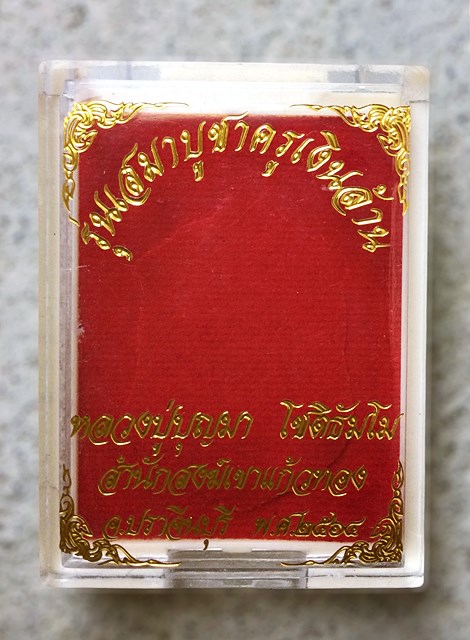 รุ่นเสมาบูชาครูเงินล้าน
หลวงปู่บุญมา โชติธัมโม
สำนักสงฆ์เขาแก้วทอง
จ.ปราจีนบุรี พ.ศ.๒๕๖๔